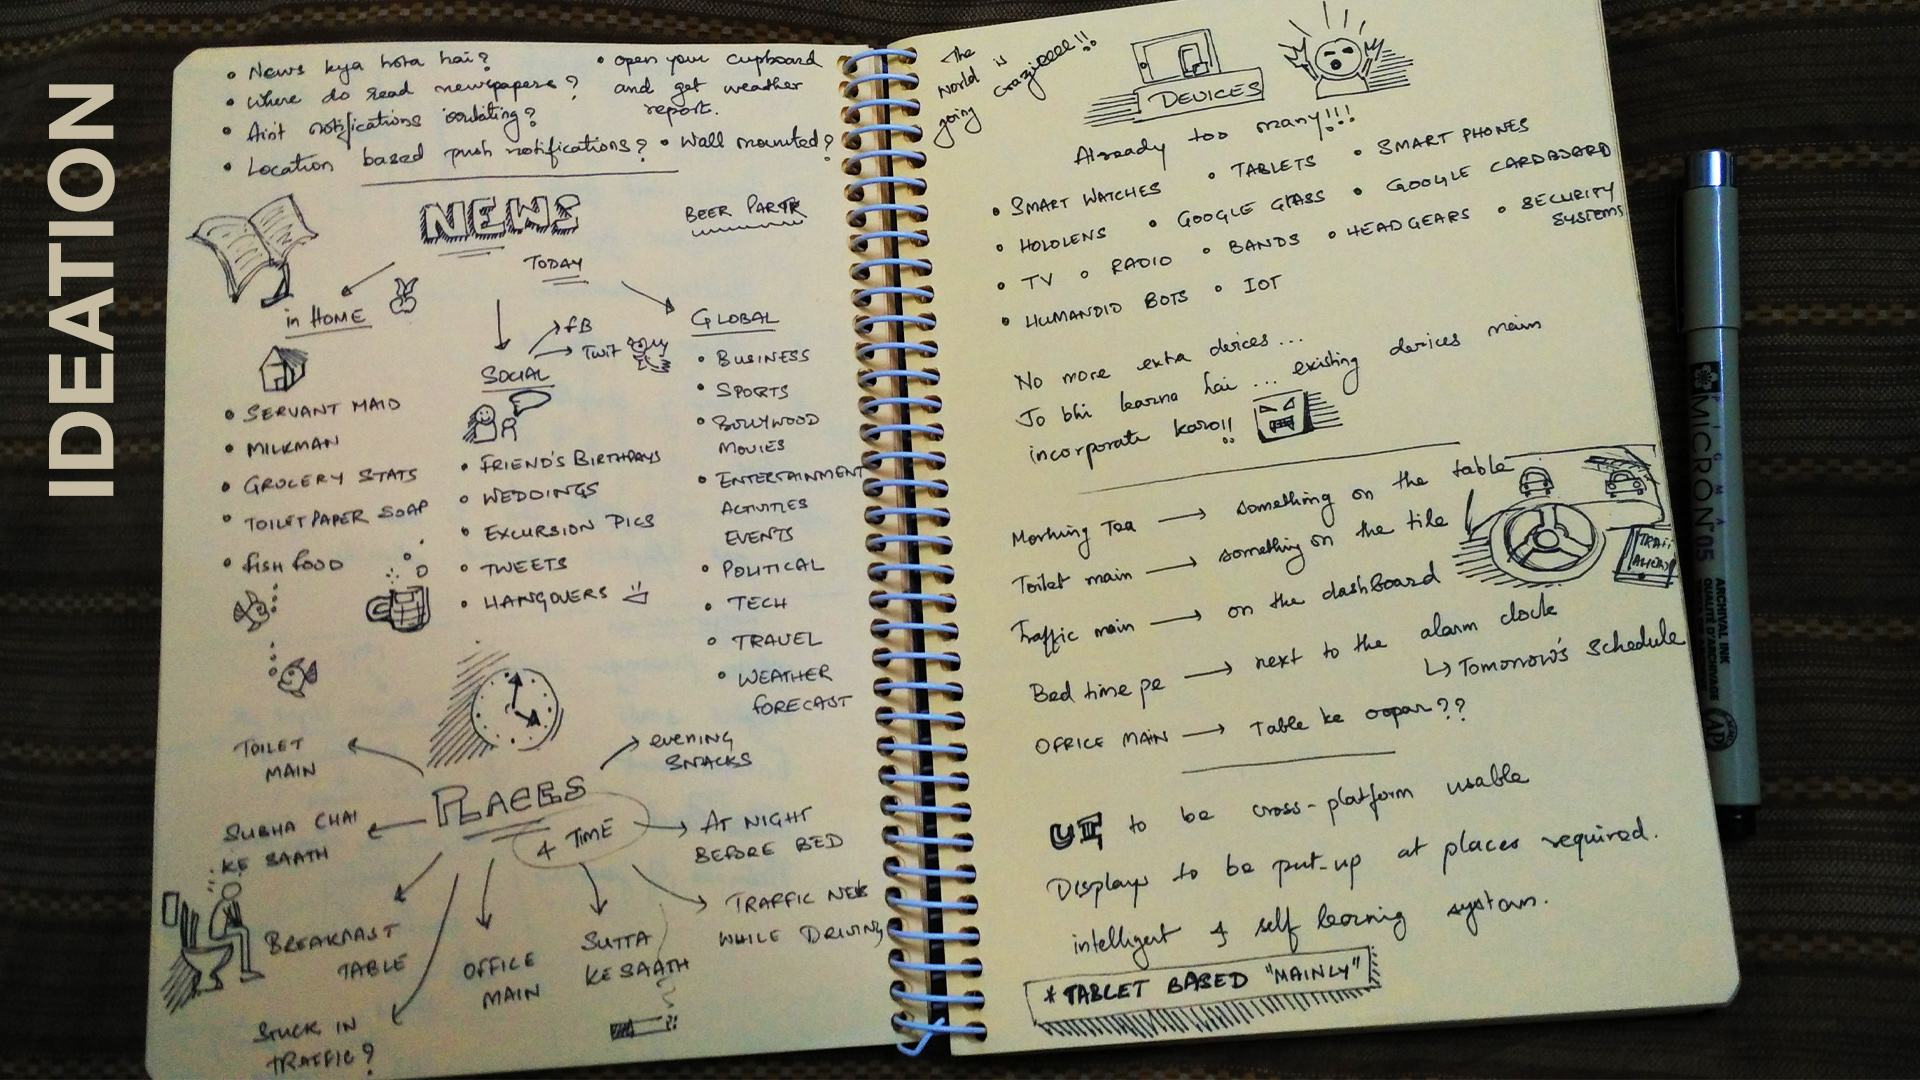 IDEATION
• News kya hota hai?
• Where do read newspapers?
• Ain't notifications irritating?
• Location based push notifications?
• open your cupboard
and get weather
report.
• Wall mounted?
NEWS
BEER
TODAY
in HOME
• SERVANT MAID
• MILKMAN
• GROCERY STATS
• TOILET PAPER SOAP
• FISH FOOD
→ FB
→ Twit
SOCIAL
• FRIEND'S BIRTHDAYS
• WEDDINGS
• EXCURSION PICS
• TWEETS
• HANGOVERS
GLOBAL
• BUSINESS
• SPORTS
• BOLLYWOOD
MOVIES
• ENTERTAINMENT
ACTIVITIES
EVENTS
• POLITICAL
• TECH
• TRAVEL
• WEATHER
FORECAST
PLACES
& TIME
TOILET
MAIN
SUBHA CHAI
KE SAATH
BREAKFAST
TABLE
STUCK IN
TRAFFIC?
OFFICE
MAIN
SUTTA
KE SAATH
TRAFFIC NEWS
WHILE DRIVING
AT NIGHT
BEFORE BED
EVENING
SNACKS
The
world is
going crazieeee!!
DEVICES
Already too many!!!
• SMART WATCHES • TABLETS • SMART PHONES
• HOLOLENS • GOOGLE GLASS • GOOGLE CARDBOARD
• TV • RADIO • BANDS • HEADGEARS • SECURITY
SYSTEMS
• HUMANOID BOTS • IOT
No more extra devices...
Jo bhi karna hai ... existing devices main
incorporate karo!!
Morning Tea → something on the table
Toilet main → something on the tile
Traffic main → on the dashboard
Bed time pe → next to the alarm clock
↳ Tomorrow's Schedule
OFFICE MAIN → Table ke oopar??
TRAFFIC
ALERTS
UI to be cross-platform usable
Displays to be put-up at places required.
intelligent & self learning system.
* TABLET BASED "MAINLY"
PIGMA
MICRON 05
ARCHIVAL INK
QUALITÉ D'ARCHIVAGE
AP